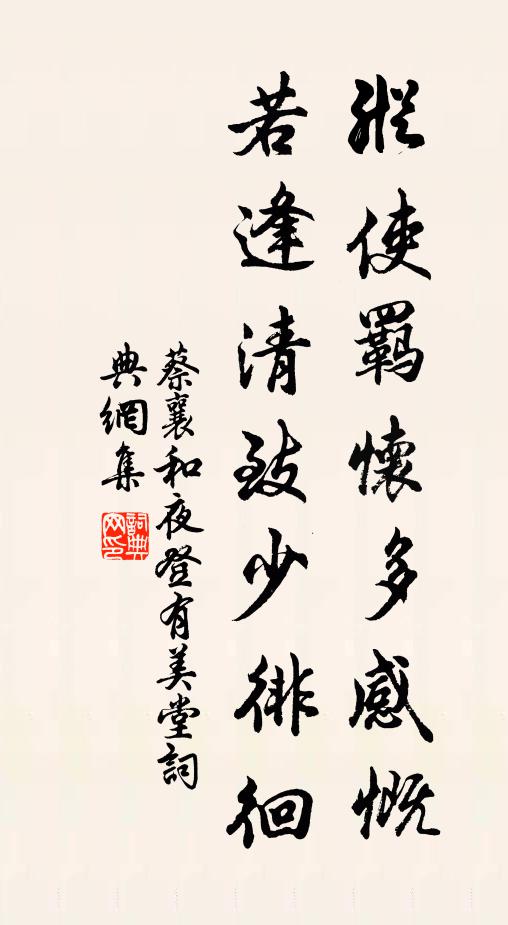 縱使羈懷多感慨
若逢清致少徘徊
蔡襄和夜登有美堂詞
典網集
詞典網印